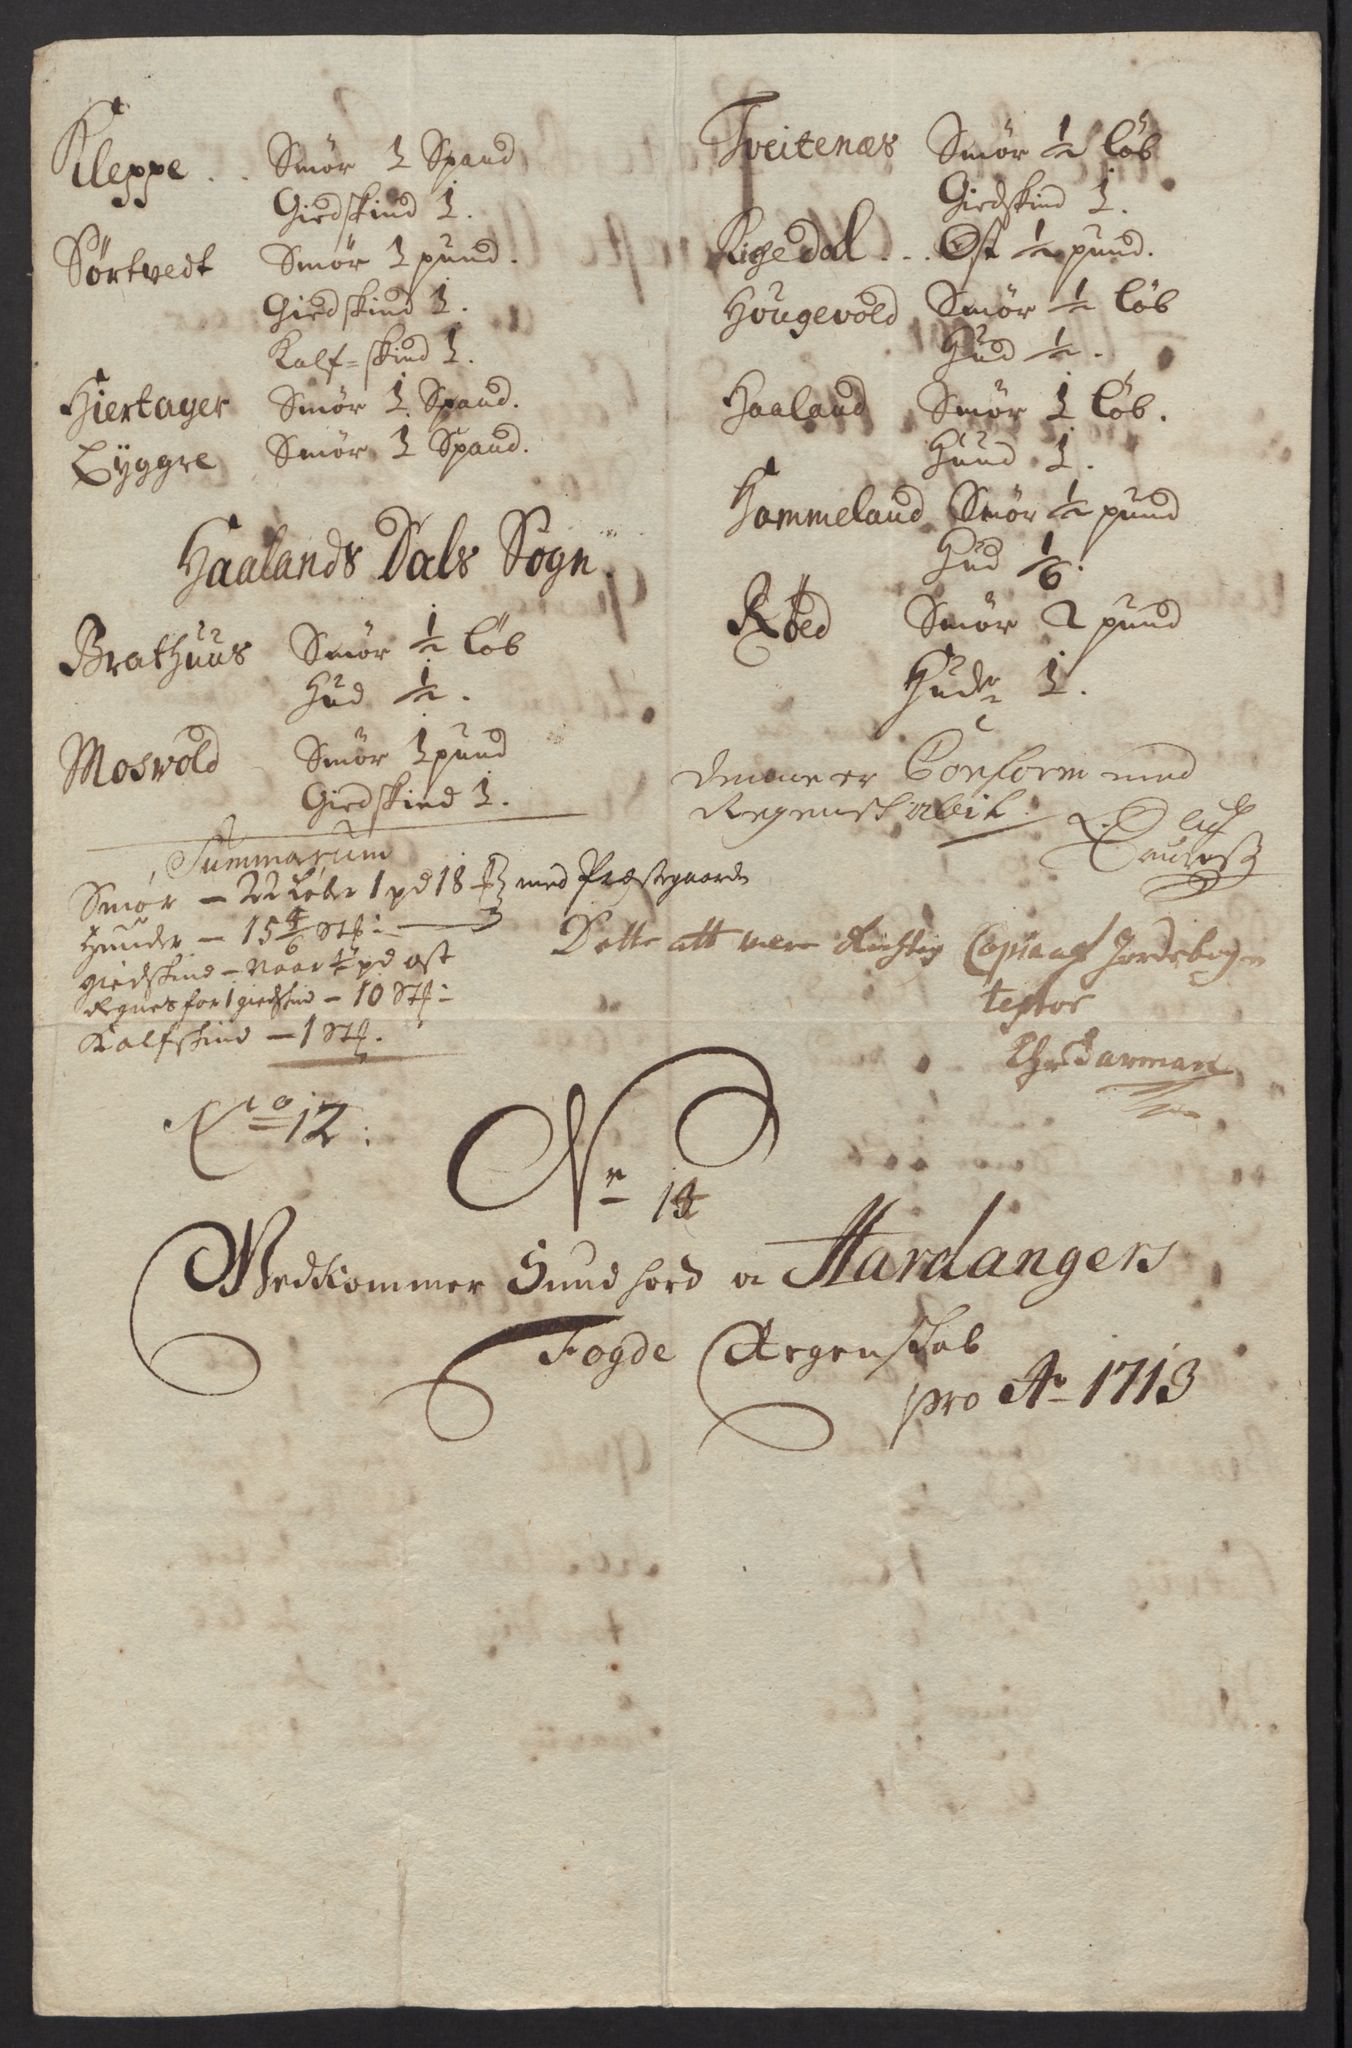 Kleppe . . Smör 1 Spand
Giedskind 1.
Sörtvedt Smör 1 pund.
Giedskind 1.
Kalf=skind 1.
Hiertager Smör 1 Spand.
Eÿggre Smör 1 Spand.
Haalands Dals Sogn.
Brathuus Smör 1/2 löb
Hud 1/2.
Moswold Smör 1 pund
Giedskind 1.
Summarum
Smör — 22 Löber 1 pd 18 ℔ med Præstegaarde
Huuder — 15 4/6 Stk:
giedskind — Naar 1/2 pd ost
Regnes for 1 giedskind — 10 Stk:
Kalfskind — 1 Stk.
Tveitenæs Smör 1/2 löb
Giedskind 1.
Rigedal . . . Ost 1/2 pund.
Hougevold Smör 1/2 löb
Hud 1/2.
Haaland Smör 1 löb.
Huud 1.
Hammeland Smör 1/2 pund
Hud 1/6.
Röed Smör 2 pund
Huder 1.
denne er Conform med
Regenskabit
Dette att were Rigtig Copia af Jordebogen
testor
No 12:
Nr 12
Wedkommer Sundhord oc Hardangers
Fogde Regenskab
pro Ao 1713